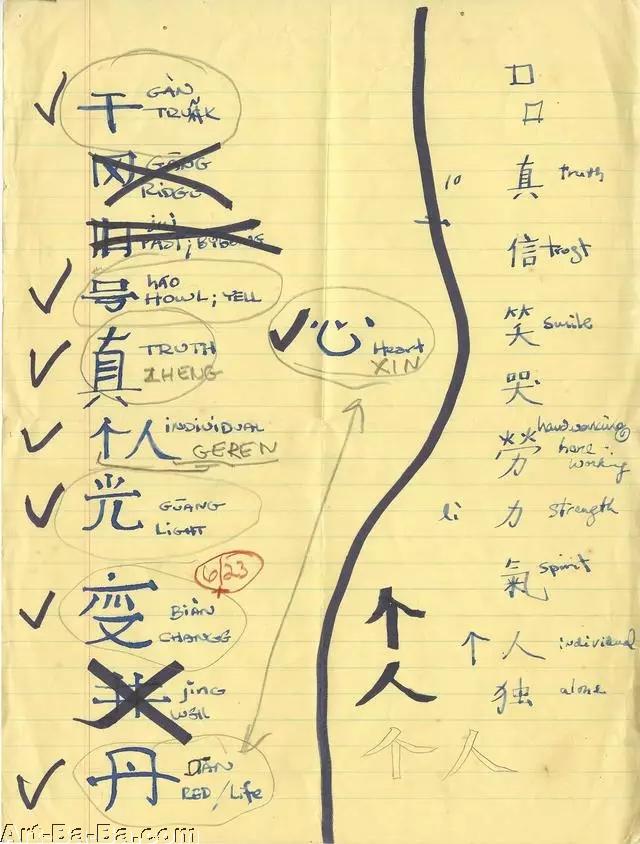 干 GÀN
TRUNK
冈 GĀNG
RIDGE
旧 jiù
PAST; BYGONE
号 hào
HOWL; YELL
真 TRUTH
ZHENG
个人 INDIVIDUAL
GEREN
光 GŪANG
LIGHT
6/23
变 BIÀN
CHANGE
井 jǐng
WELL
丹 DAN
RED/Life
心 Heart
XIN
口
口
10
真 truth
信 trust
笑 smile
哭
劳 hardworking
here:
working
li 力 strength
氣 spirit
个人 individual
独 alone
个
人
个人
Art-Ba-Ba.com